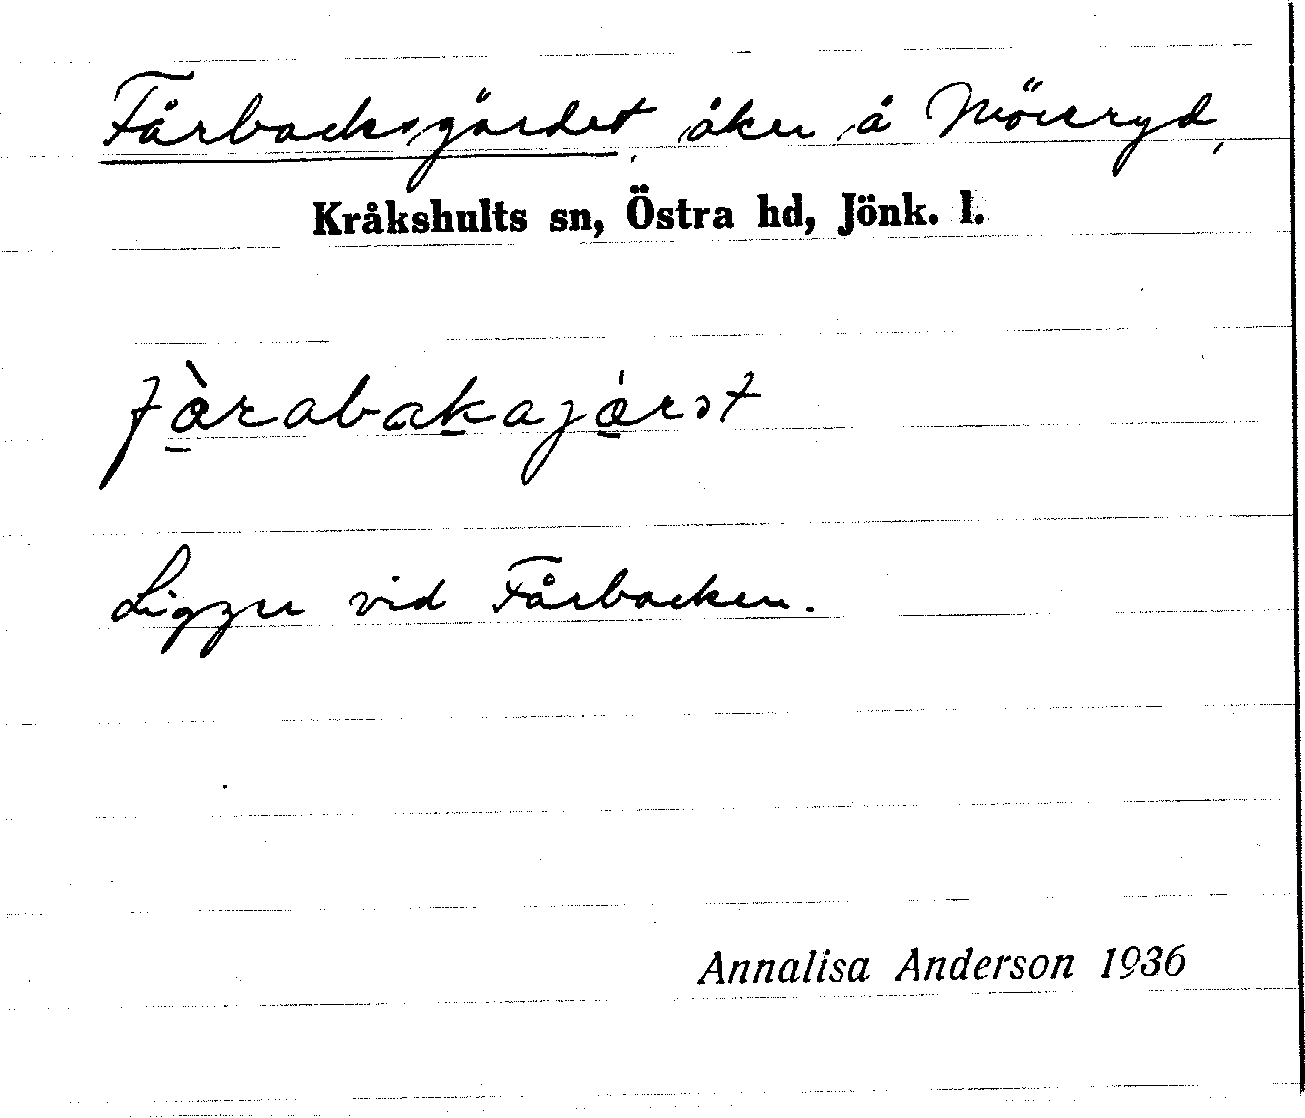 Fårbacksgärdet, åker å Möceryd,
Kråkshults sn, Östra hd, Jönk. l.
fàrabakajárət
Ligger vid Fårbacken.
Annalisa Anderson 1936